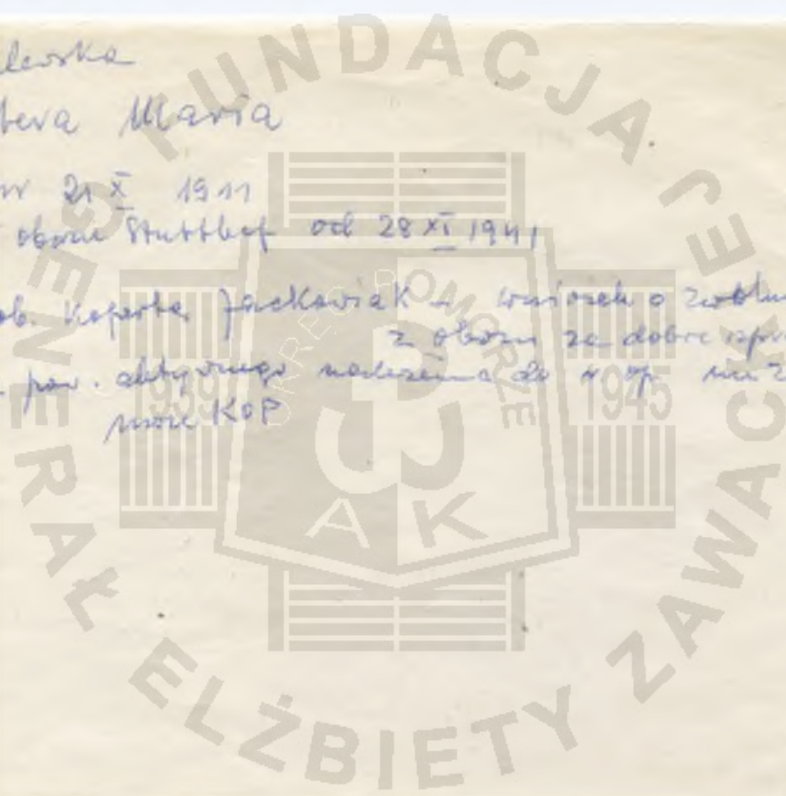 lewska
tera Maria
ur 21 X 1911
obozie Stutthof od 28 XI 1941
ob. Koperta Jackowiak - wniosek o zwoln
z obozu za dobre spr
. pow. aktywnego należenia do
może KOP
FUNDACJA
GENERAŁ
ELŻBIETY ZAWACKIEJ
OKRĘG POMORZE
1939
1945
AK